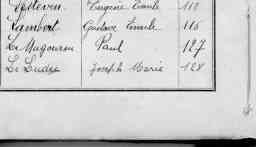 Eugène Emile 112
Lambert Gustave Emile 116
Le Mugourou Paul 127
Le Ludec Joseph Marie 128